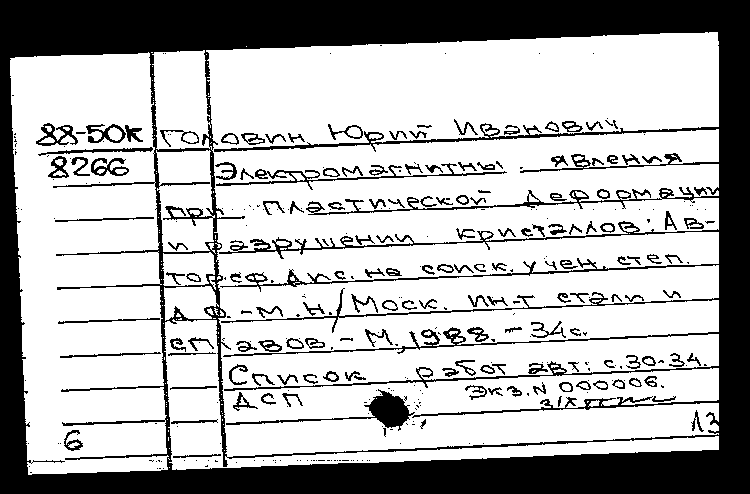 88-50к Головин, Юрий Иванович.
8266 Электромагнитны явления
при пластической деформации
и разрушении кристаллов: Ав-
тореф. дис. на соиск. учен. степ.
д. ф.-м. н. / Моск. ин-т стали и
сплавов. - М., 1988. - 34 с.
Список работ авт: с. 30-34.
ДСП Экз. N 000006.
6 13